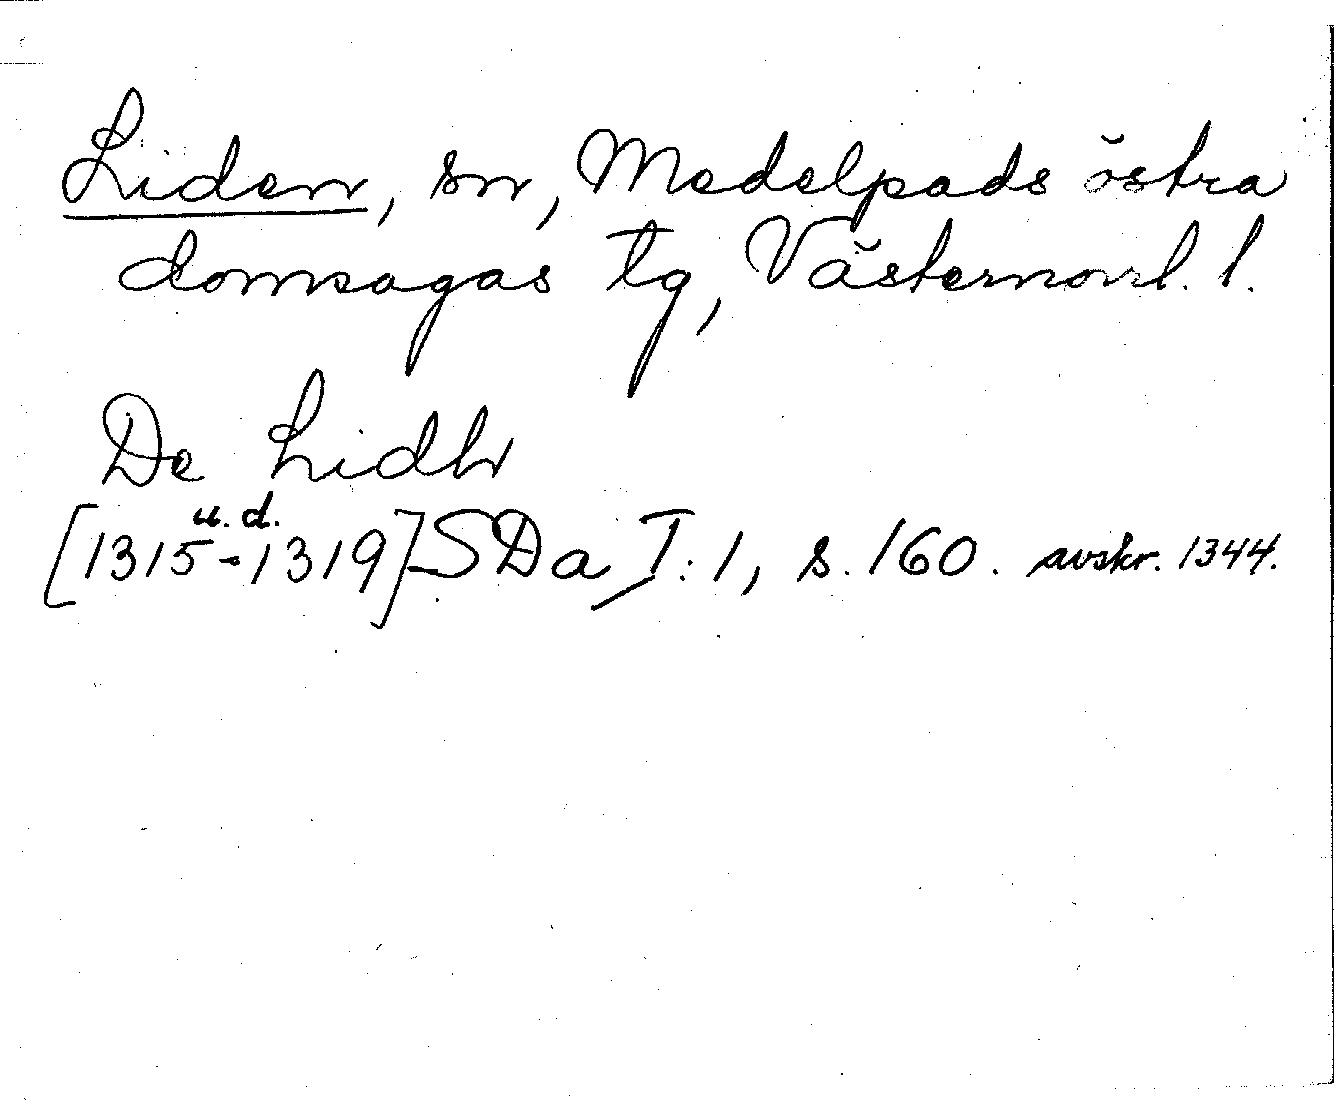 Liden, sn, Medelpads östra
domsagas tg, Västernorrl. l.
De Lidh
u. d.
[1315-1319] SDa I:1, s. 160. avskr. 1344.